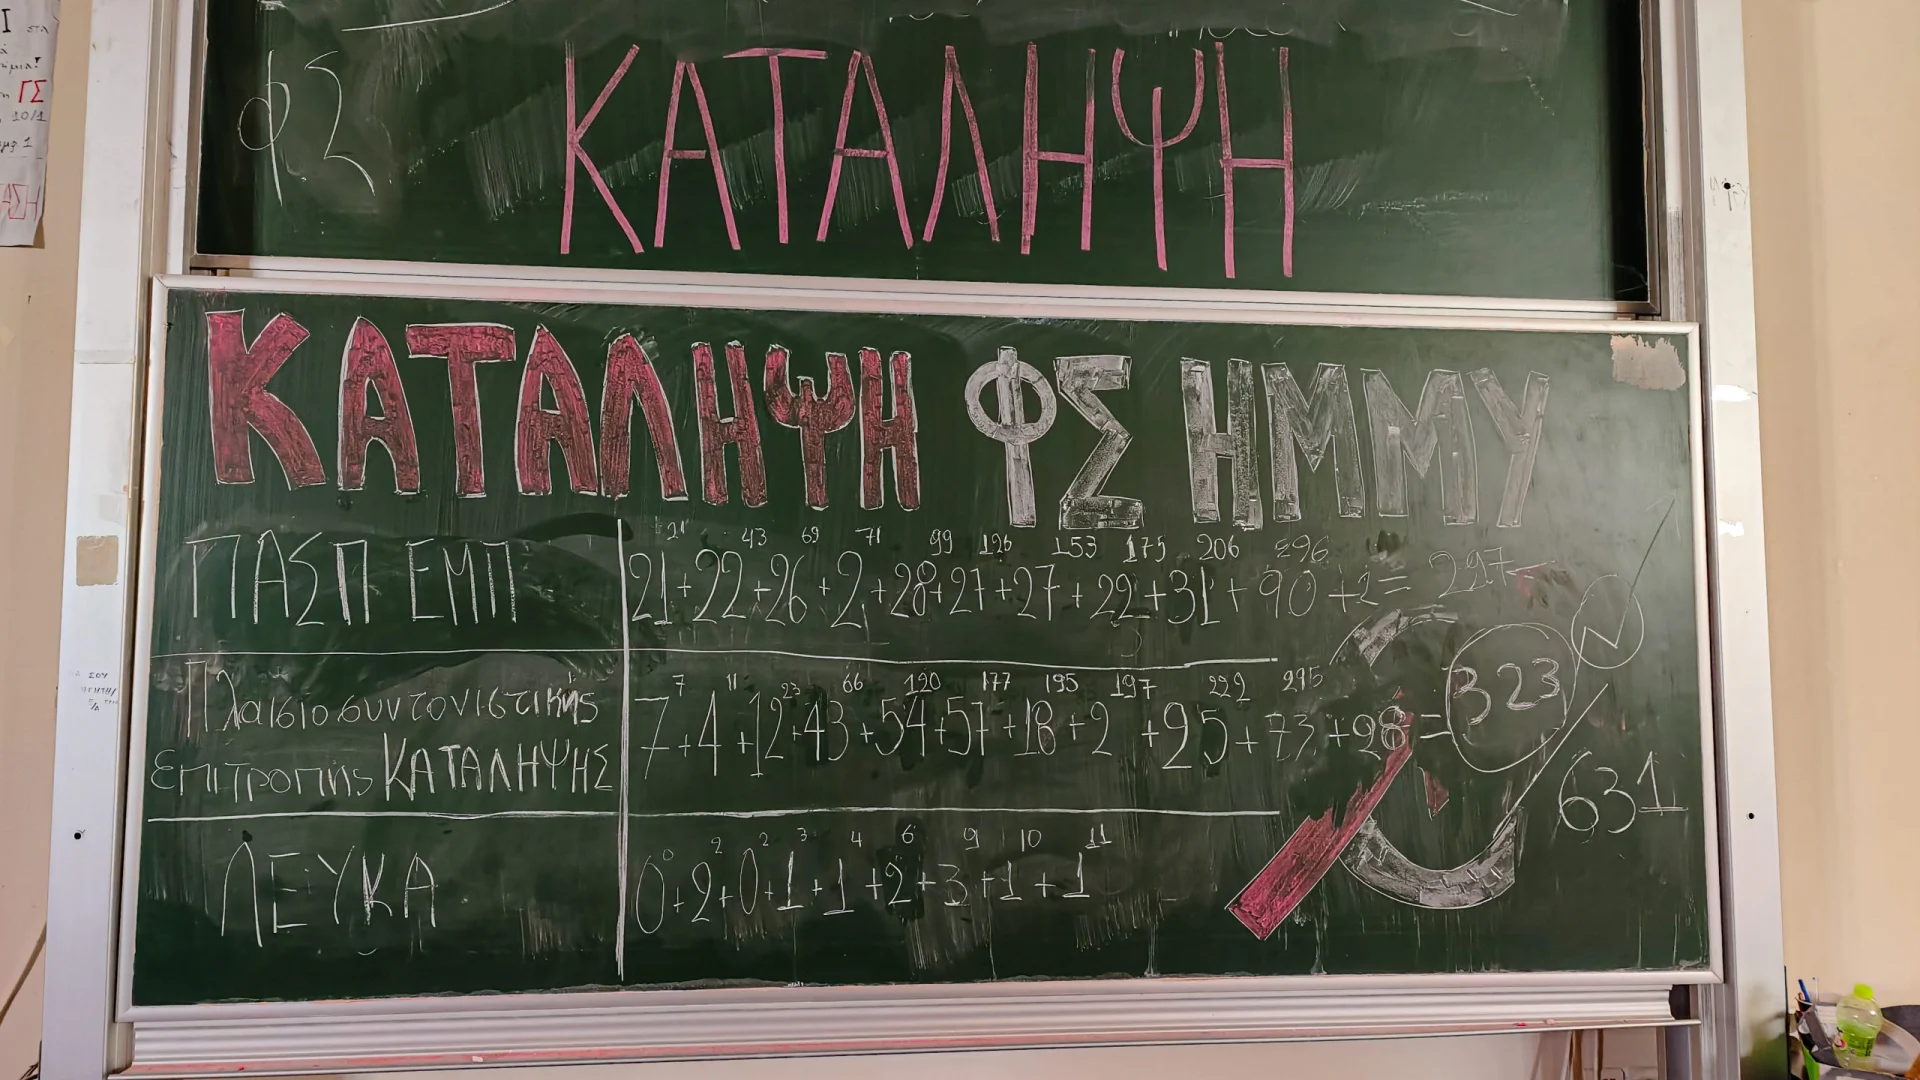 Ι στα
ΓΣ
10/1
ΑΣΗ
ΦΣ
ΚΑΤΑΛΗΨΗ
ΚΑΤΑΛΗΨΗ ΦΣ ΗΜΜΥ
21 43 69 71 99 126 153 175 206 296
ΠΑΣΠ ΕΜΠ 21+22+26+2+28+27+27+22+31+90+1=297
7 11 23 66 120 177 195 197 222 295
Πλαίσιο συντονιστικής 7+4+12+43+54+57+18+2+25+73+28=323
επιτροπής ΚΑΤΑΛΗΨΗΣ
631
0 2 2 3 4 6 9 10 11
ΛΕΥΚΑ 0+2+0+1+1+2+3+1+1